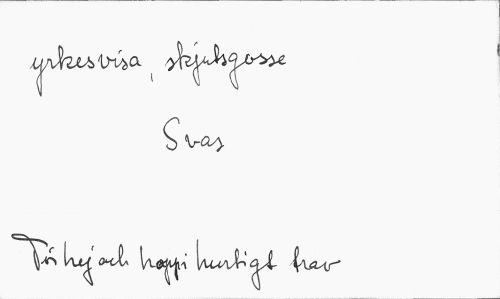 yrkesvisa, skjutsgosse
Svas
För hej och hoppi hurtigt trav